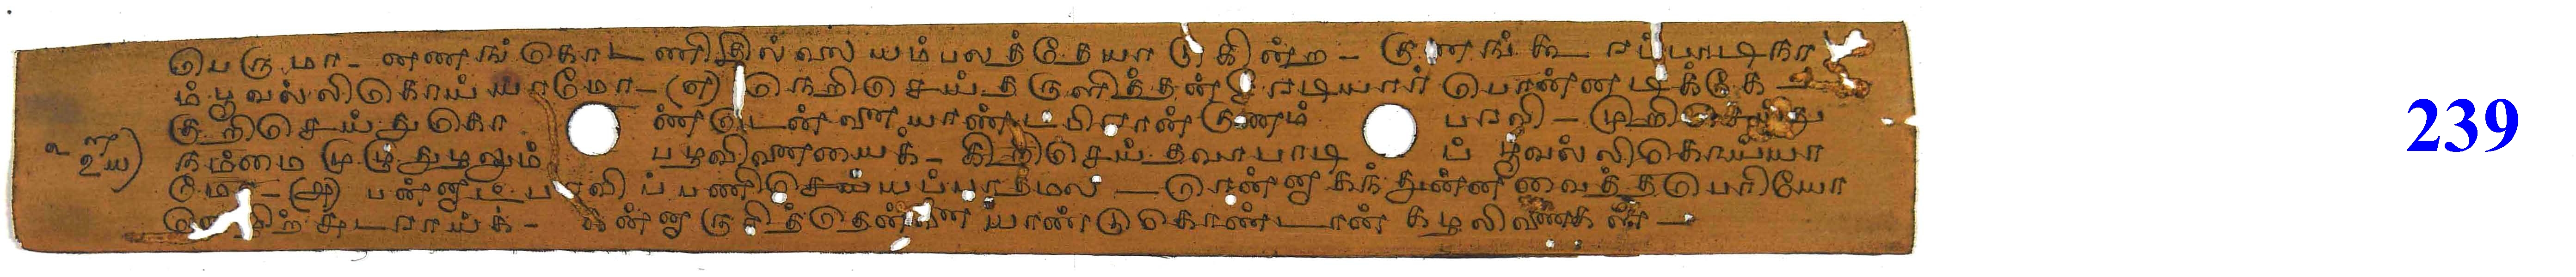 பெருமா - னணங்கொடணிதில்லையம்பலத்தேயாடுகின்ற - குணங்கூரப்பாடிநா
ம்பூவல்லிகொய்யாமோ - (எ) நெறிசெய்தருளித்தன்சீரடியார் பொன்னடிக்கே -
குறிசெய்துகொ ண்டென்னையாண்டபிரான்குணம் பரவி - முறிசெய்து
நம்மை முழுதுழலும் பழவினையைக் - கிறிசெய்தவாபாடி ப்பூவல்லிகொய்யா
மோ - (அ) பன்னாட்பரவிப்பணிசெய்யப்பாதமல - ரென்னாகந்துன்னவைத்தபெரியோ
னெழிற்சுடராய்க் - கன்னாருரித்தென்னையாண்டுகொண்டான் கழலிணைகள் -
239